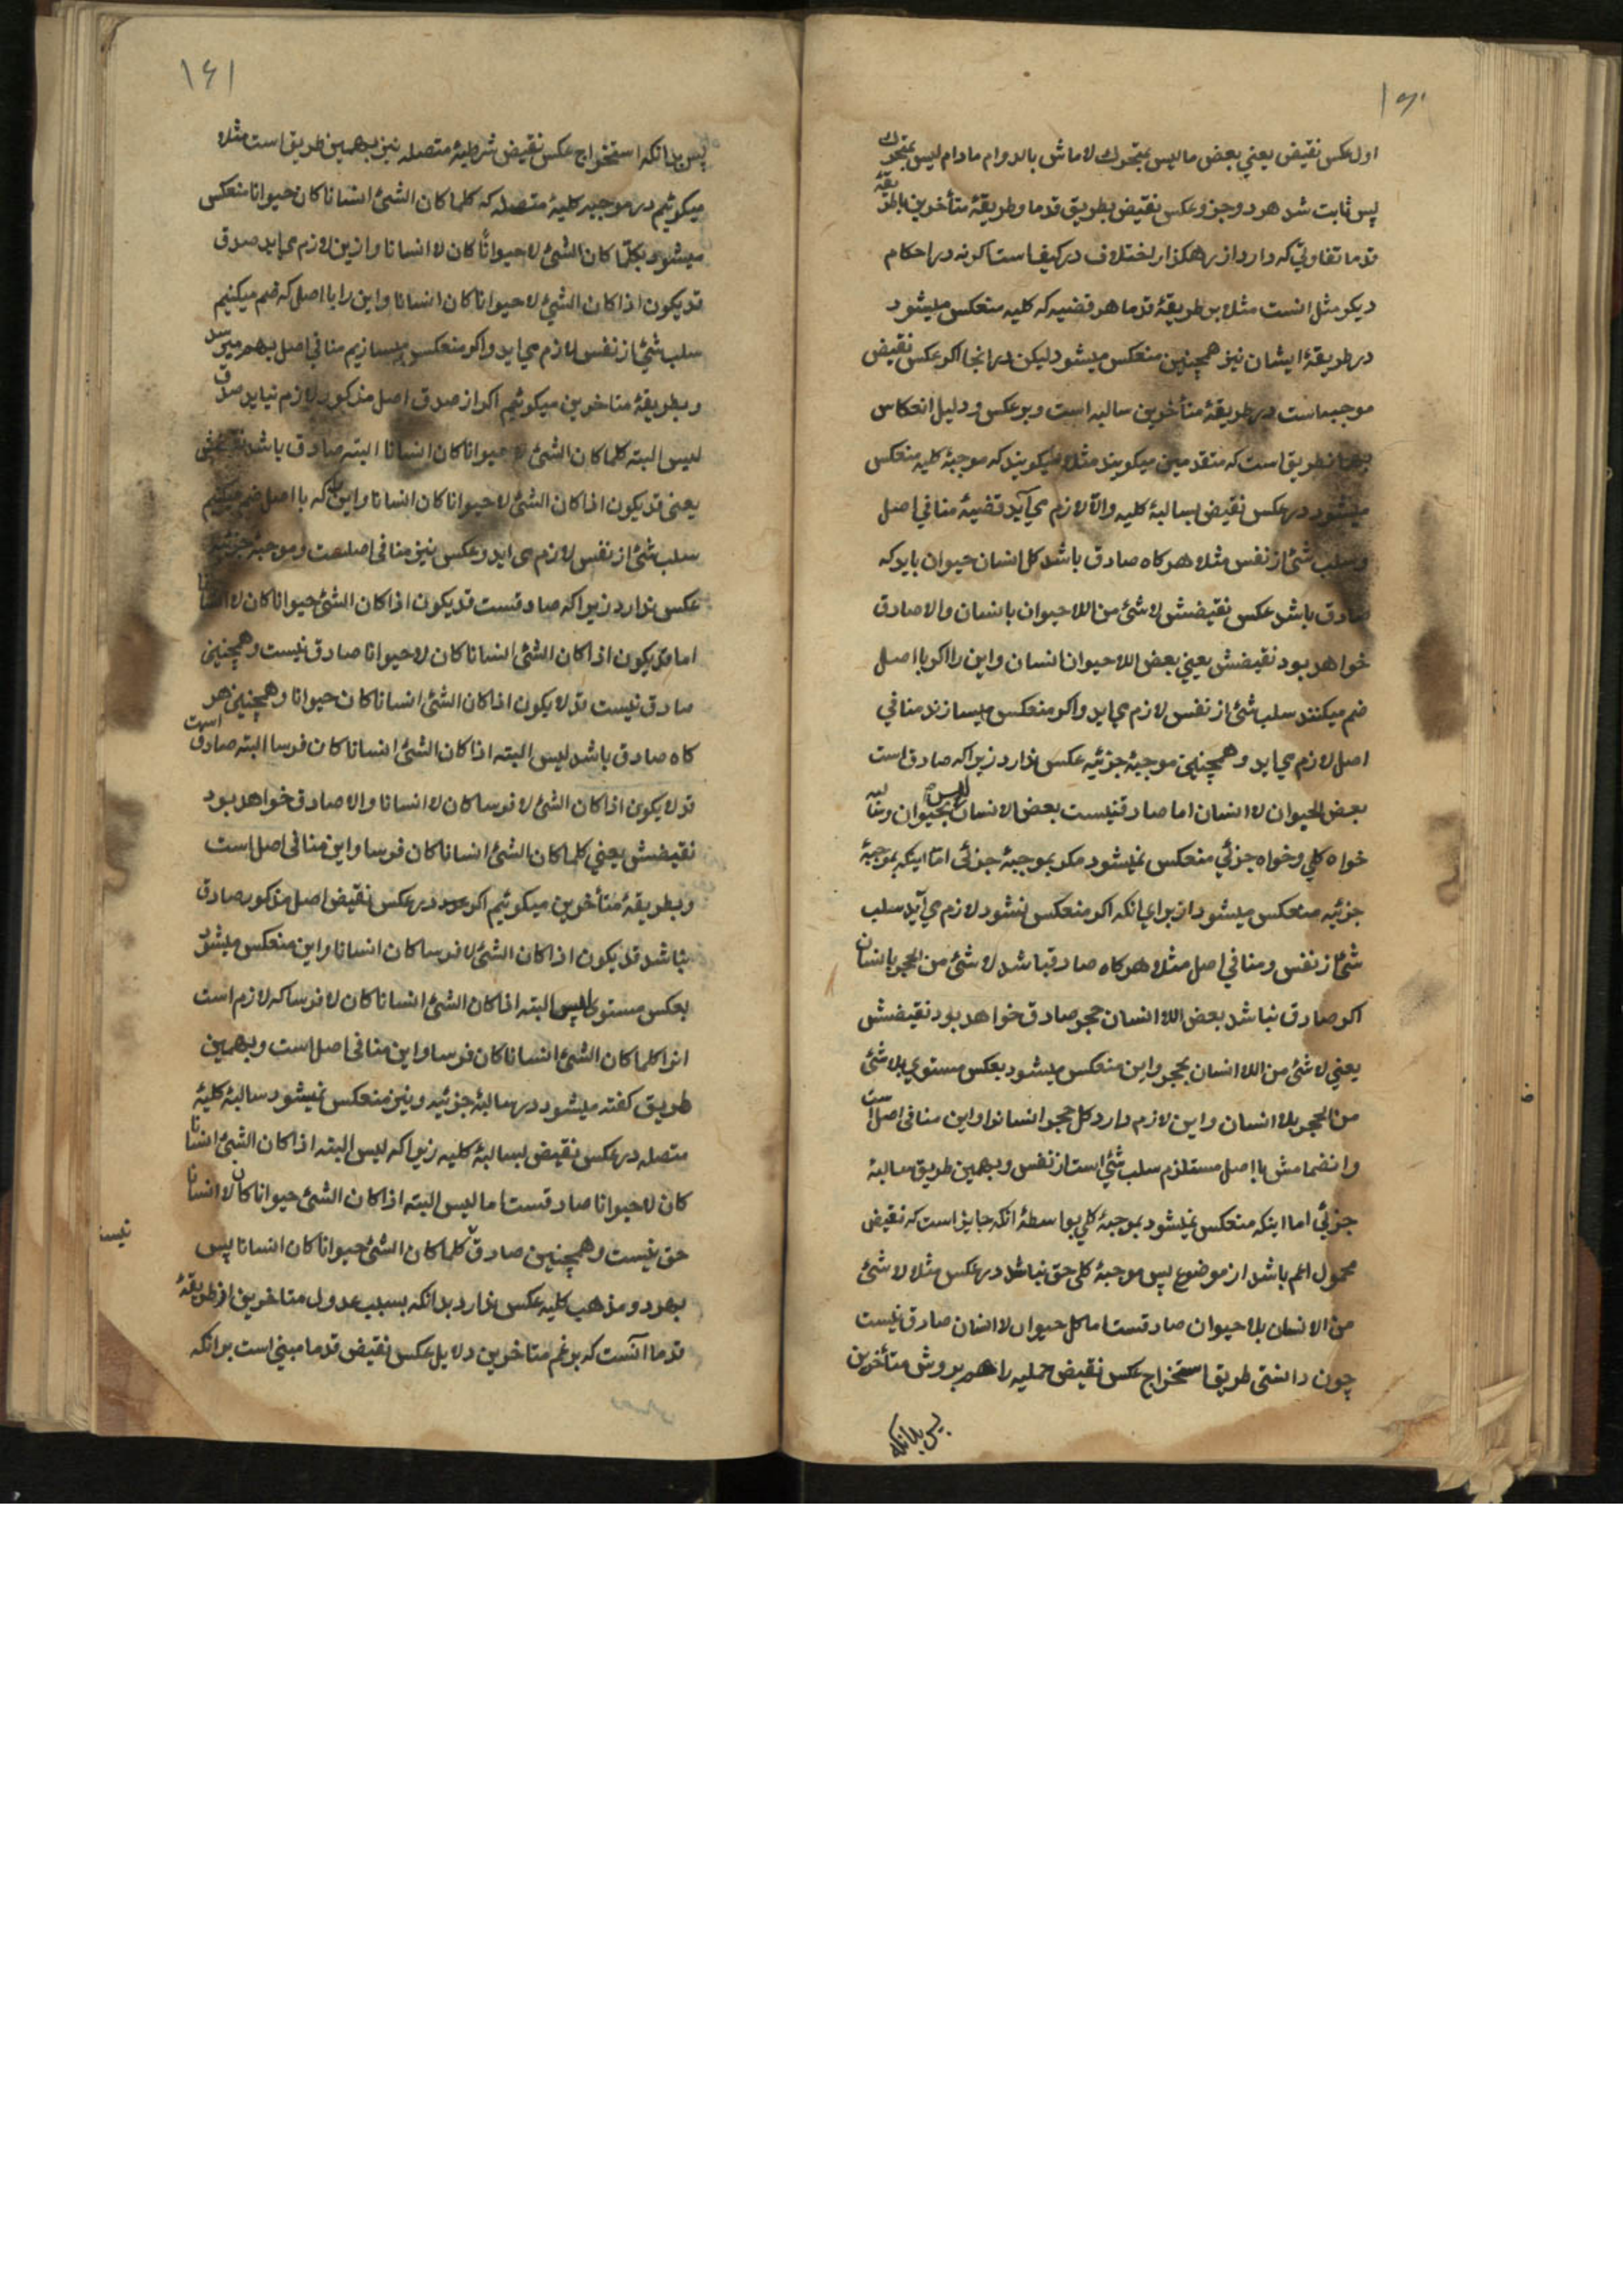 ۱۶۰
اول عکس نقیض یعنی بعض ما لیس بمتحرک لاماش بالدوام مادام لیس بمتحرک
پس ثابت شد هر دو جزو عکس نقیض بطریق قدما و طریقهٔ متأخرین با طریقهٔ
قدما تفاوتی که دارد از رهکذار اختلاف در کیف است اکر نه در احکام
دیکر مثل انست مثلا بر طریقهٔ قدما هر قضیه که کلیه منعکس میشود
در طریقهٔ ایشان نیز همچنین منعکس میشود لیکن در انجا اکر عکس نقیض
موجبه است در طریقهٔ متأخرین سالبه است و بر عکس و دلیل انعکاس
بهمانطریق است که متقدمین میکویند مثلا میکویند که موجبهٔ کلیه منعکس
میشود در عکس نقیض بسالبهٔ کلیه والّا لازم می آید قضیهٔ منافی اصل
و سلب شئ از نفس مثلا هرکاه صادق باشد کل انسان حیوان باید که
صادق باشد عکس نقیضش لا شئ من اللاحیوان بانسان والا صادق
خواهد بود نقیضش یعنی بعض اللاحیوان انسان و این را اکر با اصل
ضم میکنند سلب شئ از نفس لازم می اید و اکر منعکس میسازند منافی
اصل لازم می اید و همچنین موجبهٔ جزئیه عکس ندارد زیرا که صادق است
بعض الحیوان لا انسان اما صادق نیست بعض الانسان لیس بحیوان و سالبه
خواه کلی و خواه جزئی منعکس نمیشود مکر بموجبهٔ جزئی امّا اینکه بموجبهٔ
جزئیه منعکس میشود از برای انکه اکر منعکس نشود لازم می آید سلب
شئ از نفس و منافی اصل مثلا هرکاه صادق باشد لا شئ من الحجر بانسان
اکر صادق نباشد بعض اللا انسان حجر صادق خواهد بود نقیضش
یعنی لا شئ من اللا انسان بحجر و این منعکس میشود بعکس مستوی بلا شئ
من الحجر بلا انسان و این لازم دارد کل حجر انسان را و این منافی اصل است
و انضمامش با اصل مستلزم سلب شئ است از نفس و بهمین طریق سالبهٔ
جزئی اما اینکه منعکس نمیشود بموجبهٔ کلی بواسطهٔ انکه جایز است که نقیض
محمول اعم باشد از موضوع پس موجبهٔ کلی حق نباشد در عکس مثلا لا شئ
من الانسان بلا حیوان صادقست اما کل حیوان لا انسان صادق نیست
چون دانستی طریق استخراج عکس نقیض حملیه را هم بروش متأخرین
پس بدانکه
۱۶۱
پس بدانکه استخراج عکس نقیض شرطیهٔ متصله نیز بهمین طریق است مثلا
میکوئیم در موجبه کلیهٔ متصله که کلما کان الشئ انسانا کان حیوانا منعکس
میشود بکلّما کان الشئ لاحیواناً کان لا انسانا و ازین لازم می اید صدق
قد یکون اذا کان الشئ لاحیوانا کان انسانا و این را با اصل که ضم میکنیم
سلب شئ از نفس لازم می اید و اکر منعکس میسازیم منافی اصل بهم میرسد
و بطریقهٔ متاخرین میکوئیم اکر از صدق اصل مذکور لازم نیاید صدق
لیس البته کلما کان الشئ لا حیوانا کان انسانا البته صادق باشد نقیضش
یعنی قد یکون اذا کان الشئ لاحیوانا کان انسانا و این را که با اصل ضم میکنیم
سلب شئ از نفس لازم می اید و عکس نیز منافی اصلست و موجبهٔ جزئیه
عکس ندارد زیرا که صادقست قد یکون اذا کان الشئ حیوانا کان لا انسانا
اما قد یکون اذا کان الشئ انسانا کان لاحیوانا صادق نیست و همچنین
صادق نیست قد لا یکون اذا کان الشئ انسانا کان حیوانا و همچنین هر
کاه صادق باشد لیس البته اذا کان الشئ انسانا کان فرسا البته صادق است
قد لا یکون اذا کان الشئ لا فرسا کان لا انسانا والا صادق خواهد بود
نقیضش یعنی کلما کان الشئ انسانا کان فرسا و این منافی اصل است
و بطریقهٔ متأخرین میکوئیم اکر در عکس نقیض اصل مذکور صادق
نباشد قد یکون اذا کان الشئ لا فرسا کان انسانا و این منعکس میشود
بعکس مستوی لیس البته اذا کان الشئ انسانا کان لا فرسا که لازم است
انرا کلما کان الشئ انسانا کان فرسا و این منافی اصل است و بهمین
طریق کفته میشود در سالبهٔ جزئیه و نیز منعکس نمیشود سالبهٔ کلیهٔ
متصله در عکس نقیض بسالبهٔ کلیه زیرا که لیس البته اذا کان الشئ انسانا
کان لاحیوانا صادقست اما لیس البته اذا کان الشئ حیوانا کان لا انسانا
حق نیست و همچنین صادق کلما کان الشئ حیوانا کان انسانا پس
نیست
بهر دو مذهب کلیه عکس ندارد بدانکه بسبب عدول متاخرین از طریقهٔ
قدما آنست که بزعم متاخرین دلایل عکس نقیض قدما مبنی است بر انکه